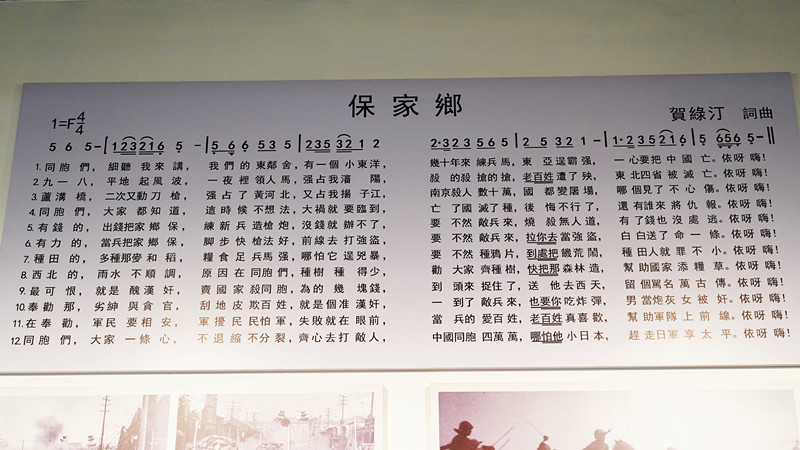 保家鄉
1=F4/4
賀綠汀 詞曲
5 6 5 - | 1 2 3 2 1 6 5 - | 5 6 6 5 3 5 | 2 3 5 3 2 1 2 2·3 2 3 5 6 5 | 2 5 3 2 1 - | 1·2 3 5 2 1 6 | 5 6 5 6 5 - ‖
1.同胞們，細聽我來講，我們的東鄰舍，有一個小東洋，幾十年來練兵馬，東亞逞霸强，一心要把中國亡。依呀嗨！
2.九一八，平地起風波，一夜裡領人馬，强占我瀋陽，殺的殺搶的搶，老百姓遭了殃，東北四省被滅亡。依呀嗨！
3.蘆溝橋，二次又動刀槍，强占了黃河北，又占我揚子江，南京殺人數十萬，國都變屠場，哪個見了不心傷。依呀嗨！
4.同胞們，大家都知道，這時候不想法，大禍就要臨到，亡了國滅了種，後悔不行了，還有誰來將仇報。依呀嗨！
5.有錢的，出錢把家鄉保，練新兵造槍炮，沒錢就辦不了，要不然敵兵來，燒殺無人道，有了錢也沒處逃。依呀嗨！
6.有力的，當兵把家鄉保，脚步快槍法好，前線去打強盜，要不然敵兵來，拉你去當強盜，白白送了命一條。依呀嗨！
7.種田的，多種那夢和稻，糧食足兵馬强，哪怕它逞兇暴，要不然種鴉片，到處把饑荒鬧，種田人就罪不小。依呀嗨！
8.西北的，雨水不順調，原因在同胞們，種樹種得少，勸大家齊種樹，快把那森林造，幫助國家添糧草。依呀嗨！
9.最可恨，就是醜漢奸，賣國家殺同胞，為的幾塊錢，到頭來捉住了，送他去西天，留個罵名萬古傳。依呀嗨！
10.奉勸那，劣紳與貪官，刮地皮欺百姓，就是個准漢奸，一到了敵兵來，也要你吃炸彈，男當炮灰女被奸。依呀嗨！
11.在奉勸，軍民要相安，軍擾民民怕軍，失敗就在眼前，當兵的愛百姓，老百姓真喜歡，幫助軍隊上前線。依呀嗨！
12.同胞們，大家一條心，不退縮不分裂，齊心去打敵人，中國同胞四萬萬，哪怕他小日本，趕走日軍享太平。依呀嗨！